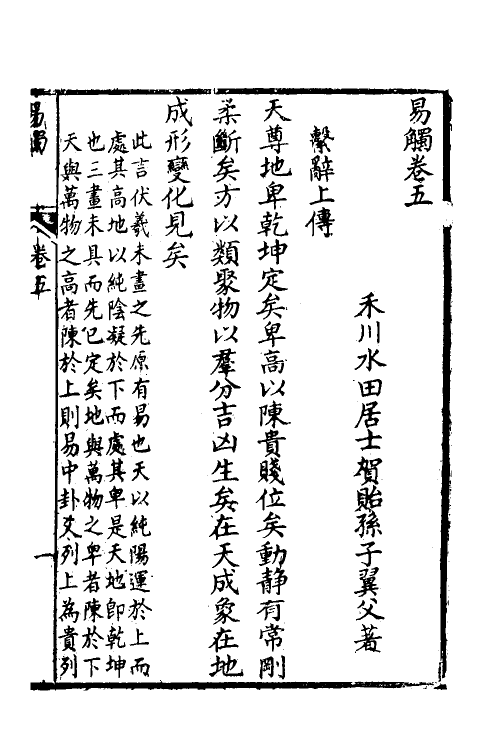 易觸卷五
禾川水田居士賀貽孫子翼父著
繫辭上傳
天尊地卑乾坤定矣卑高以陳貴賤位矣動靜有常剛
柔斷矣方以類聚物以羣分吉凶生矣在天成象在地
成形變化見矣
此言伏羲未畫之先原有易也天以純陽運於上而
處其高地以純陰凝於下而處其卑是天地卽乾坤
也三畫未具而先已定矣地與萬物之卑者陳於下
天與萬物之高者陳於上則易中卦爻列上為貴列
易觸
卷五
一